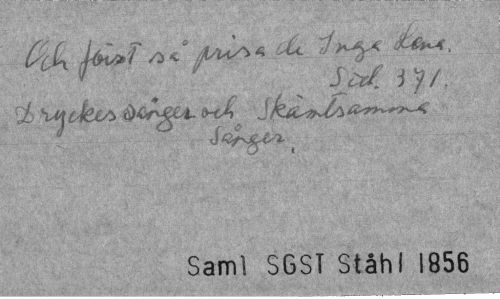 Och först så prisa de Inga Lena.
Sid. 371.
Dryckessånger och Skämtsamma
Sånger.
Saml SGST Ståhl 1856